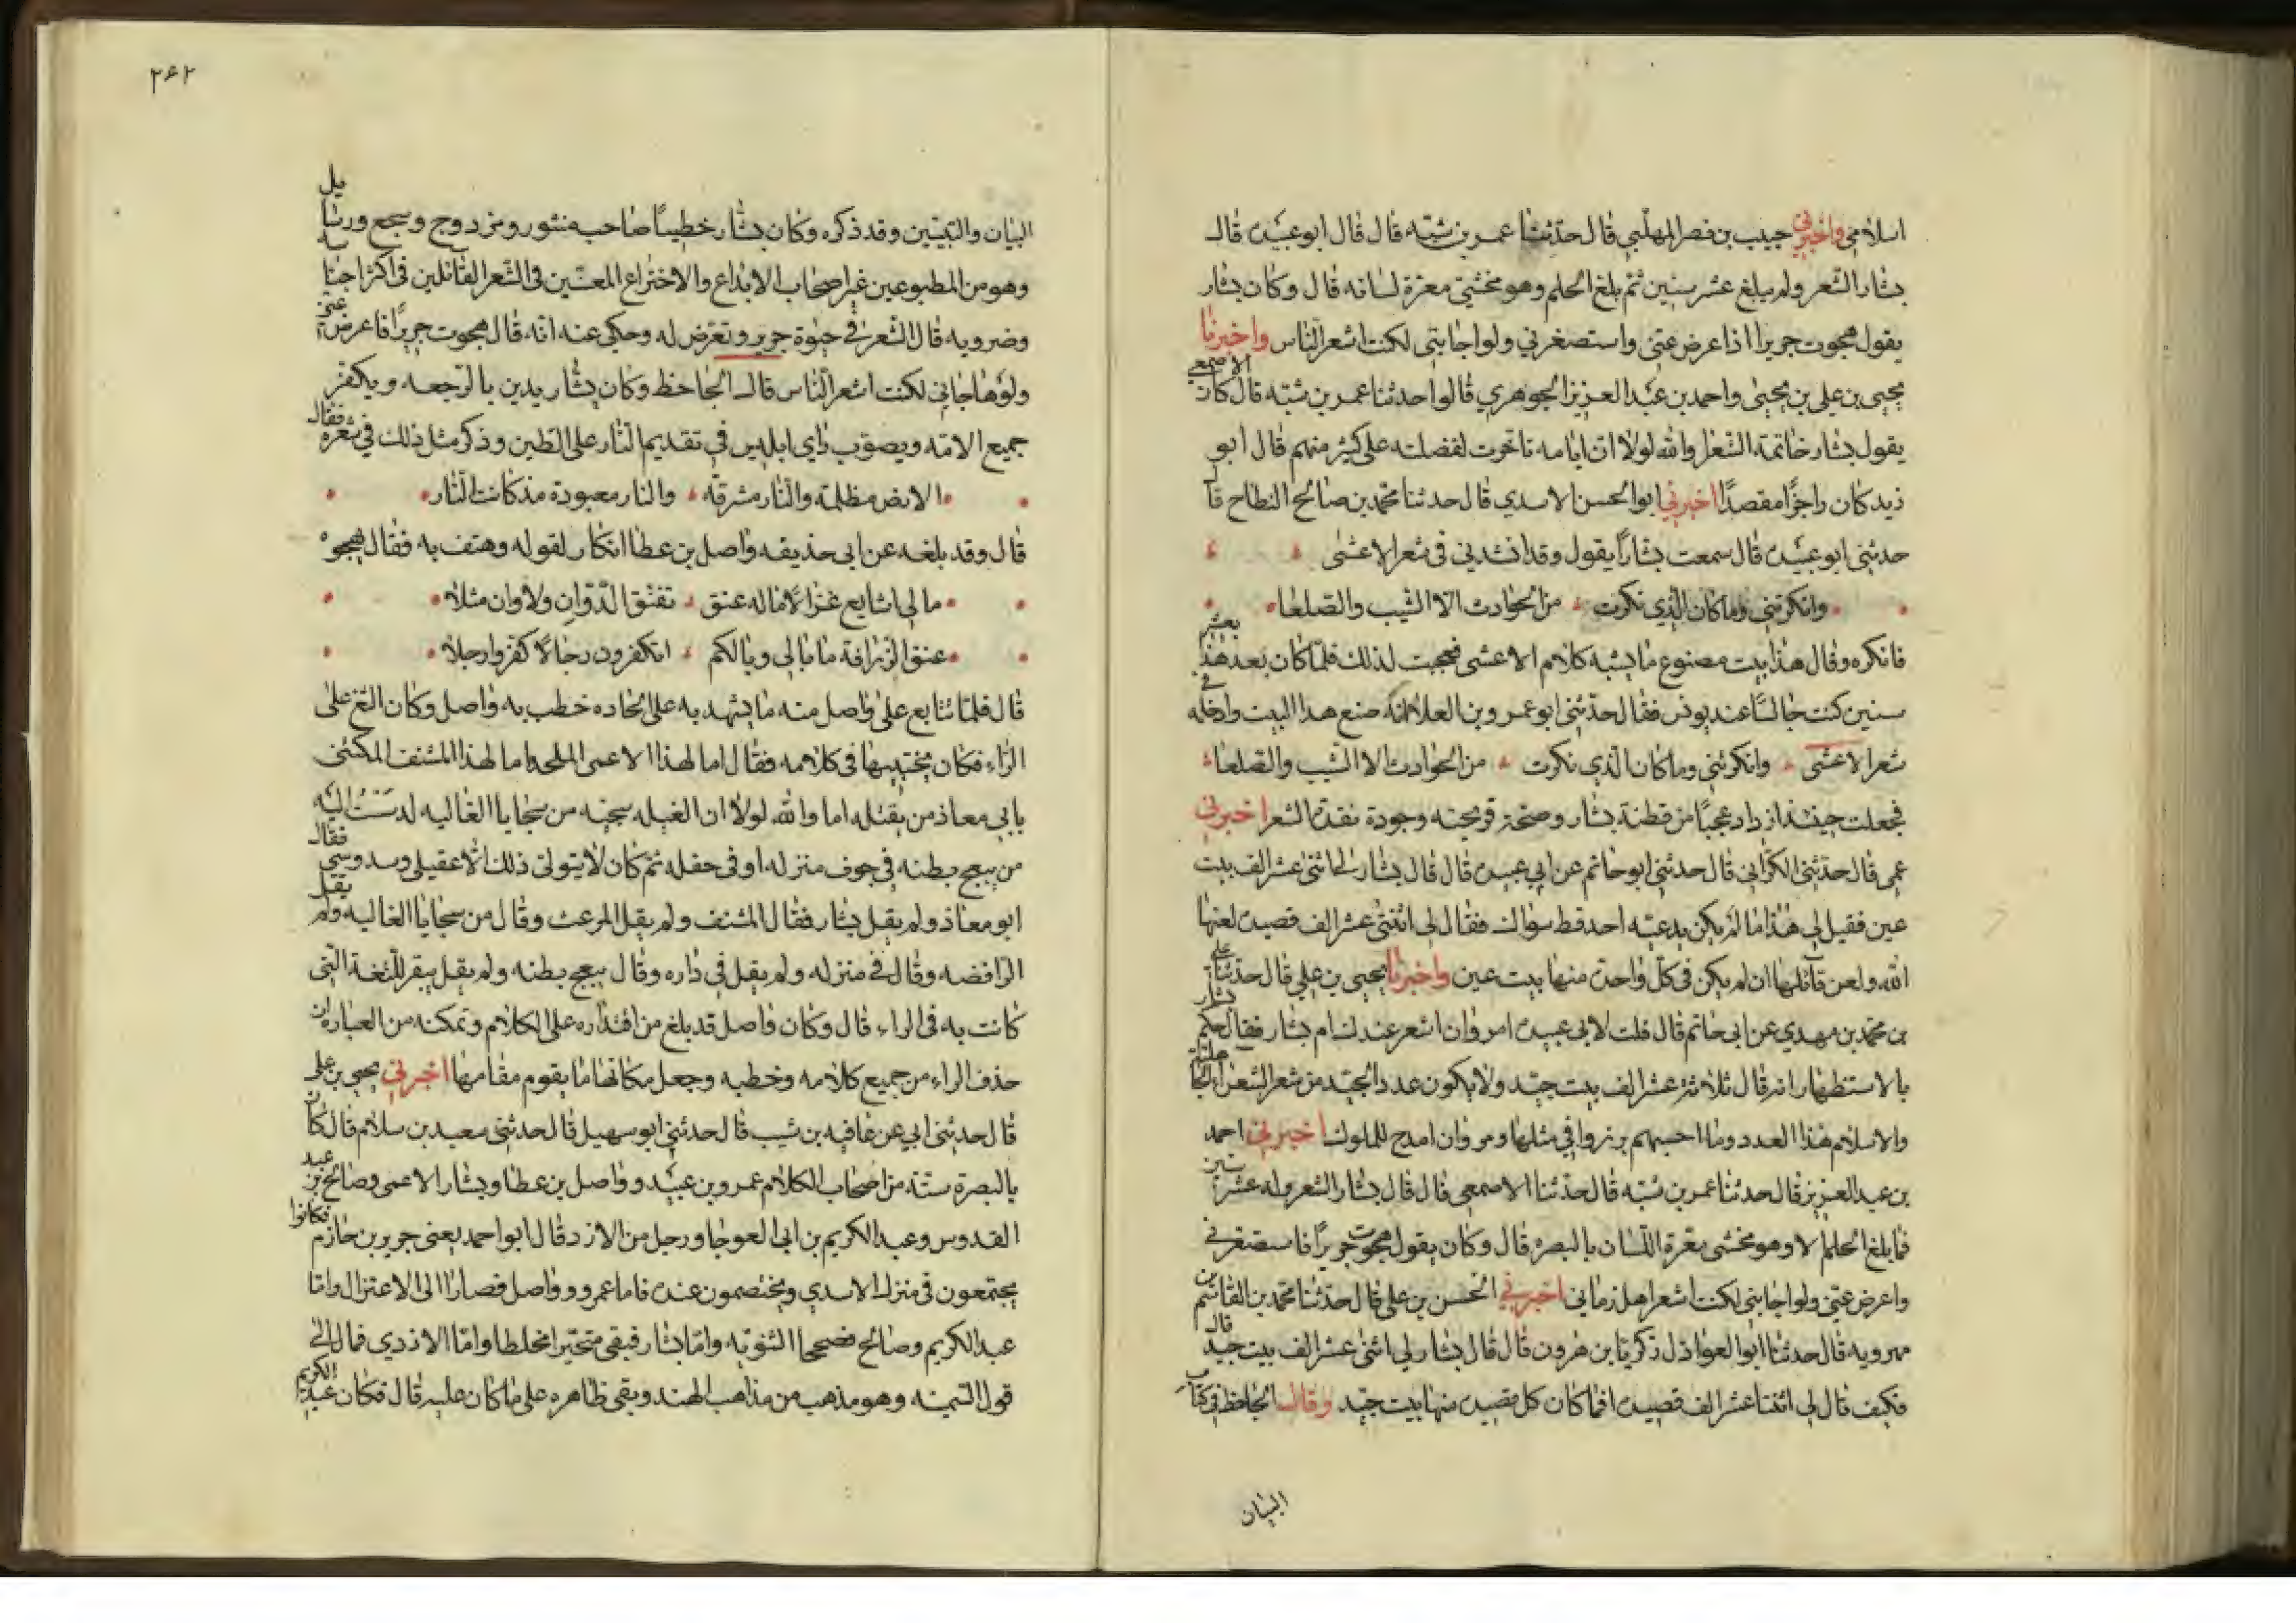 اسلامي واخبرني حبيب بن نصر المهلبي قال حدثنا عمر بن شبه قال قال ابو عبيدة قال
بشار الشعر ولم يبلغ عشر سنين ثم بلغ الحلم وهو مخشي معرة لسانه قال وكان بشار
يقول هجوت جريرا اذا عرض عني واستصغرني ولو اجابني لكنت اشعر الناس واخبرنا
يحيى بن علي بن يحيى واحمد بن عبد العزيز الجوهري قالوا حدثنا عمر بن شبه قال كان الاصمعي
يقول بشار خاتمة الشعرا والله لولا ان ايامه تاخرت لفضلته على كثير منهم قال ابو
زيد كان راجزا مقصدا اخبرني ابو الحسن الاسدي قال حدثنا محمد بن صالح النطاح قا
حدثني ابو عبيدة قال سمعت بشارا يقول وقد انشدني في شعر الاعشى
وانكرتني وما كان الذي نكرت من الحوادث الا الشيب والصلعا
فانكره وقال هذا بيت مصنوع ما يشبه كلام الاعشى فعجبت لذلك فلما كان بعد هذا بعشر
سنين كنت جالسا عند يونس فقال حدثني ابو عمرو بن العلا انه صنع هذا البيت وادخله في
شعر الاعشى وانكرتني وما كان الذي نكرت من الحوادث الا الشيب والصلعا
فجعلت حينئذ ازداد عجبا من فطنة بشار وصحة قريحته وجودة نقده للشعر اخبرني
عمي قال حدثني الكراني قال حدثني ابو حاتم عن ابي عبيدة قال قال بشار لي اثنى عشر الف بيت
عين فقيل لي هذا ما لم يكن يدعيه احد قط سواك فقال لي اثنتى عشر الف قصيدة لعنها
الله ولعن قائلها ان لم يكن في كل واحدة منها بيت عين واخبرنا يحيى بن علي قال حدثنا علي
بن محمد بن مهدي عن ابي حاتم قال قلت لابي عبيدة امروان اشعر عندك ام بشار فقال حكم بشار
بالاستظهار انه قال ثلاثة عشر الف بيت جيد ولا يكون عدد الجيد من شعر الشعراء الجاهلية
والاسلام هذا العدد وما احسبهم برزوا في مثلها ومروان امدح للملوك اخبرني احمد
بن عبد العزيز قال حدثنا عمر بن شبه قال حدثنا الاصمعي قال قال بشار الشعر وله عشر سنين
فما بلغ الحلم الا وهو مخشى معرة اللسان بالبصره قال وكان يقول هجوت جريرا فاستصغرني
واعرض عني ولو اجابني لكنت اشعر اهل زماني اخبرني الحسن بن علي قال حدثنا محمد بن القاسم بن
مهرويه قال حدثنا ابو العواذل زكريا بن هرون قال قال بشار لي اثنى عشر الف بيت جيد قال
فكيف قال لي اثنتا عشر الف قصيدة افما كان كل قصيدة منها بيت جيد وقال الجاحظ في كتاب
البيان
٢٤٢
البيان والتبيين وقد ذكره وكان بشار خطيبا صاحب منثور ومزدوج وسجع ورسايل
وهو من المطبوعين غير اصحاب الابداع والاختراع المعنيين في الشعر القائلين في اكثر اجناسه
وضروبه قال الشعر في حيوة جرير وتعرض له وحكى عنه انه قال هجوت جريرا فاعرض عني
ولو هاجاني لكنت اشعر الناس قال الجاحظ وكان بشار يدين بالرجعه ويكفر
جميع الامه ويصوب راي ابليس في تقديم النار على الطين وذكر مثل ذلك في شعره فقال
الارض مظلمة والنار مشرقه والنار معبودة مذ كانت النار
قال وقد بلغه عن ابي حذيفه واصل بن عطا انكار لقوله وهتف به فقال يهجوه
مالي اشايع غزالا ماله عنق نقنق الدوان ولا وان مثلا
عنق الزرافة ما بالي وبالكم اتكفرون رجالا كفروا رجلا
قال فلما تتابع على واصل منه ما يشهد به على الحاده خطب به واصل وكان الثغ على
الراء فكان يجتنبها في كلامه فقال اما لهذا الاعمى الملحد اما لهذا المشنف المكتنى
بابي معاذ من يقتله اما والله لولا ان الغيله سجيه من سجايا الغاليه لدسست اليه
من يبعج بطنه في جوف منزله او في حفله ثم كان لا يتولى ذلك الا عقيلي وسدوسي فقال
ابو معاذ ولم يقل بشار فقال المشنف ولم يقل المرعث وقال من سجايا الغاليه ولم يقل
الرافضه وقال في منزله ولم يقل في داره وقال يبعج بطنه ولم يقل يبقر للثغة التي
كانت به في الراء قال وكان واصل قد بلغ من اقتداره على الكلام وتمكنه من العباره ان
حذف الراء من جميع كلامه وخطبه وجعل مكانها ما يقوم مقامها اخبرني يحيى بن علي
قال حدثني ابي عن عافيه بن شبيب قال حدثني ابو سهيل قال حدثني معيد بن سلام قال كان
بالبصرة ستة من اصحاب الكلام عمرو بن عبيد وواصل بن عطا وبشار الاعمى وصالح بن عبد
القدوس وعبد الكريم بن ابي العوجا ورجل من الازد قال ابو احمد يعني جرير بن حازم فكانوا
يجتمعون في منزل الاسدي ويختصمون عنده فاما عمرو وواصل فصارا الى الاعتزال واما
عبد الكريم وصالح فصححا الثنويه واما بشار فبقي متحيرا مخلطا واما الازدي فمال الى
قول السمنيه وهو مذهب من مذاهب الهند وبقي ظاهره على ما كان عليه قال فكان عبد الكريم